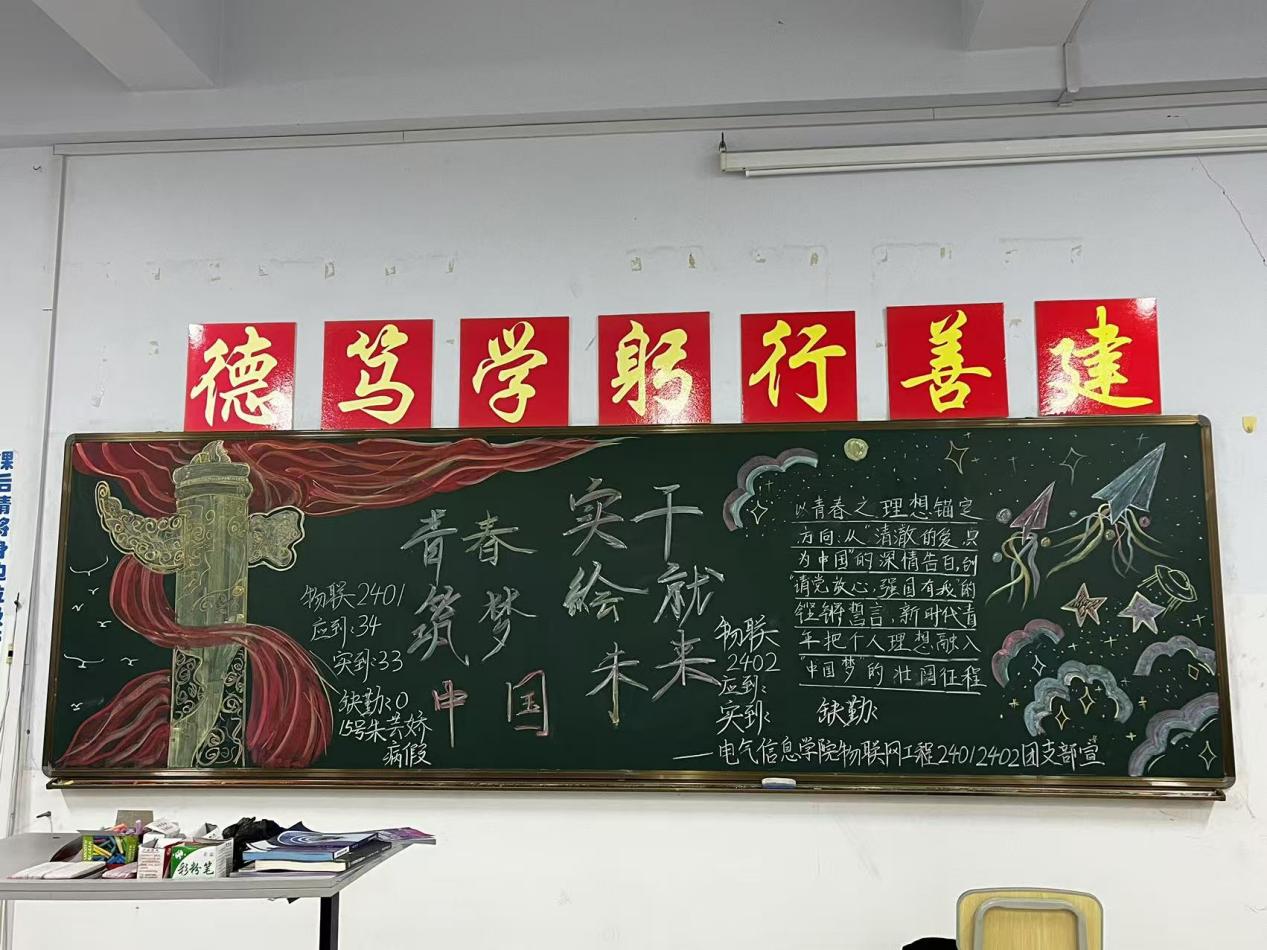 德笃学躬行善建
青春
筑梦
中国
实干
绘就
未来
物联2401
应到:34
实到:33
缺勤:0
15号朱芸娇
病假
物联
2402
应到:
实到:
缺勤:
以青春之理想锚定
方向,从“清澈的爱,只
为中国”的深情告白,到
“请党放心,强国有我”的
铿锵誓言,新时代青
年把个人理想融入
“中国梦”的壮阔征程
——电气信息学院物联网工程24012402团支部宣
课后请将身边
彩粉笔